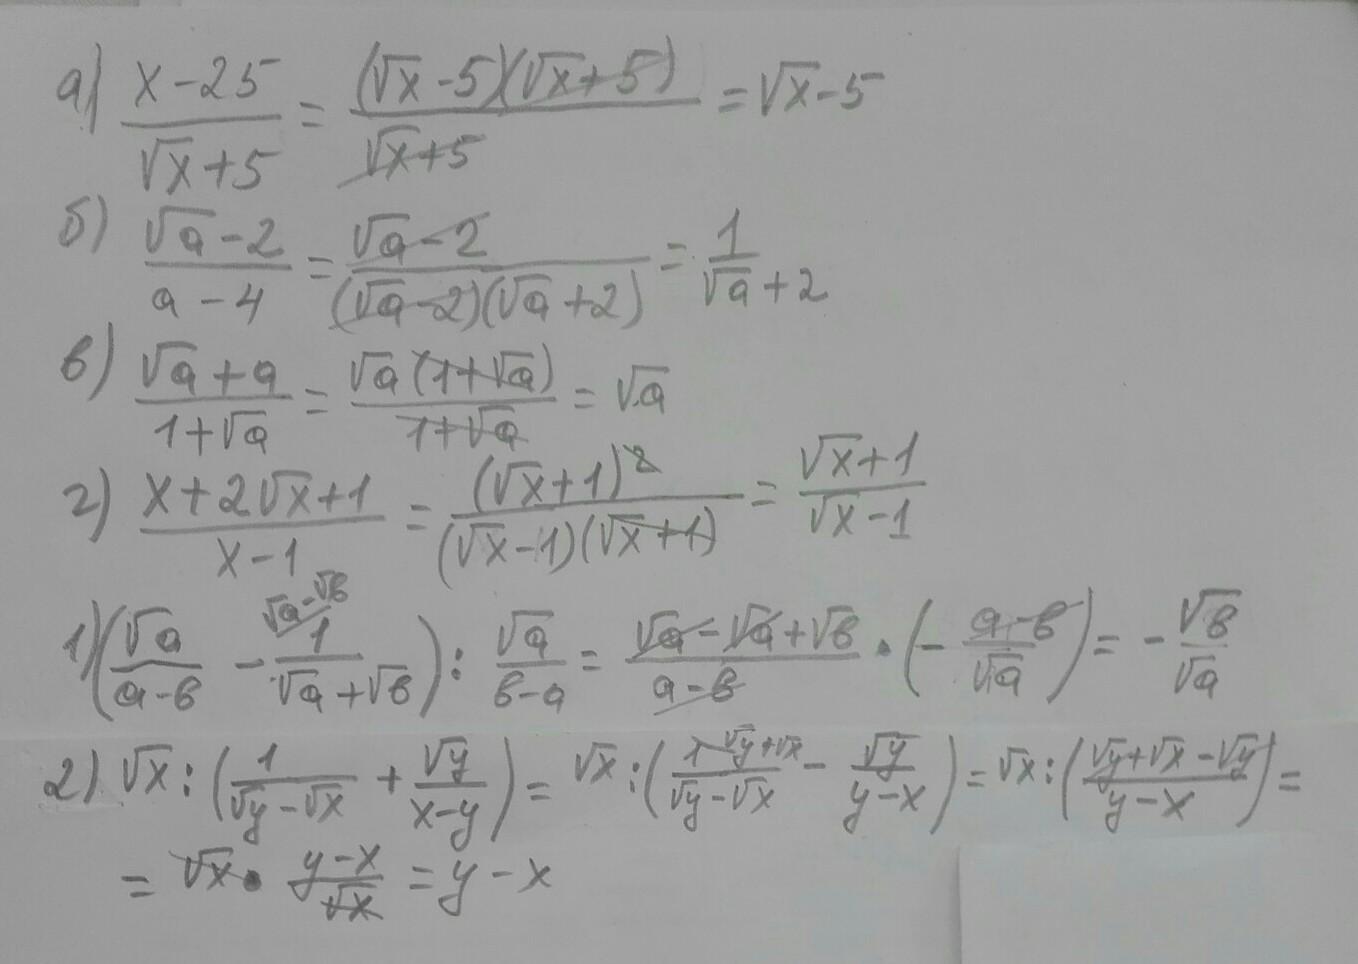 а) (x-25)/(√x+5) = ((√x-5)(√x+5))/(√x+5) = √x-5
б) (√a-2)/(a-4) = (√a-2)/((√a-2)(√a+2)) = 1/(√a+2)
в) (√a+a)/(1+√a) = (√a(1+√a))/(1+√a) = √a
г) (x+2√x+1)/(x-1) = (√x+1)²/((√x-1)(√x+1)) = (√x+1)/(√x-1)
1) (√a/(a-в) - 1/(√a+√в) √a-√в) : √a/(в-a) = (√a-√a+√в)/(a-в) · (-(a-в)/√a) = -√в/√a
2) √x : (1/(√y-√x) + √y/(x-y)) = √x : (1/(√y-√x) √y+√x - √y/(y-x)) = √x : ((√y+√x-√y)/(y-x)) =
= √x · (y-x)/√x = y-x